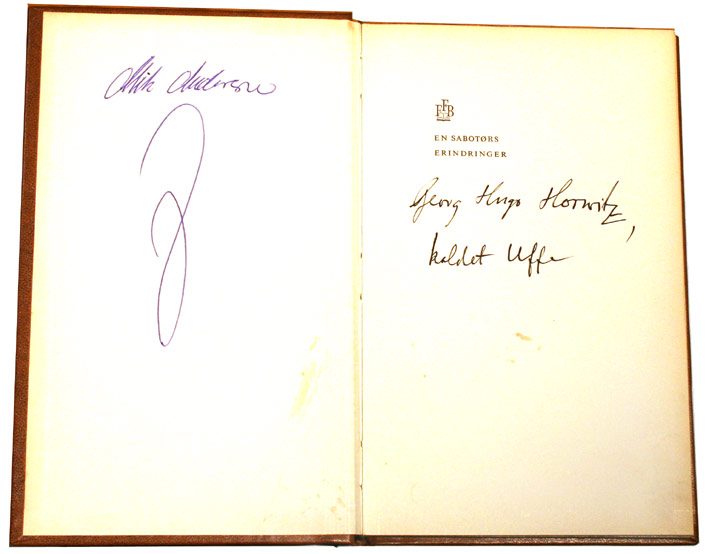 Mik Anderson
EFB
EN SABOTØRS
ERINDRINGER
Georg Hugo Horwitz,
kaldet Uffe